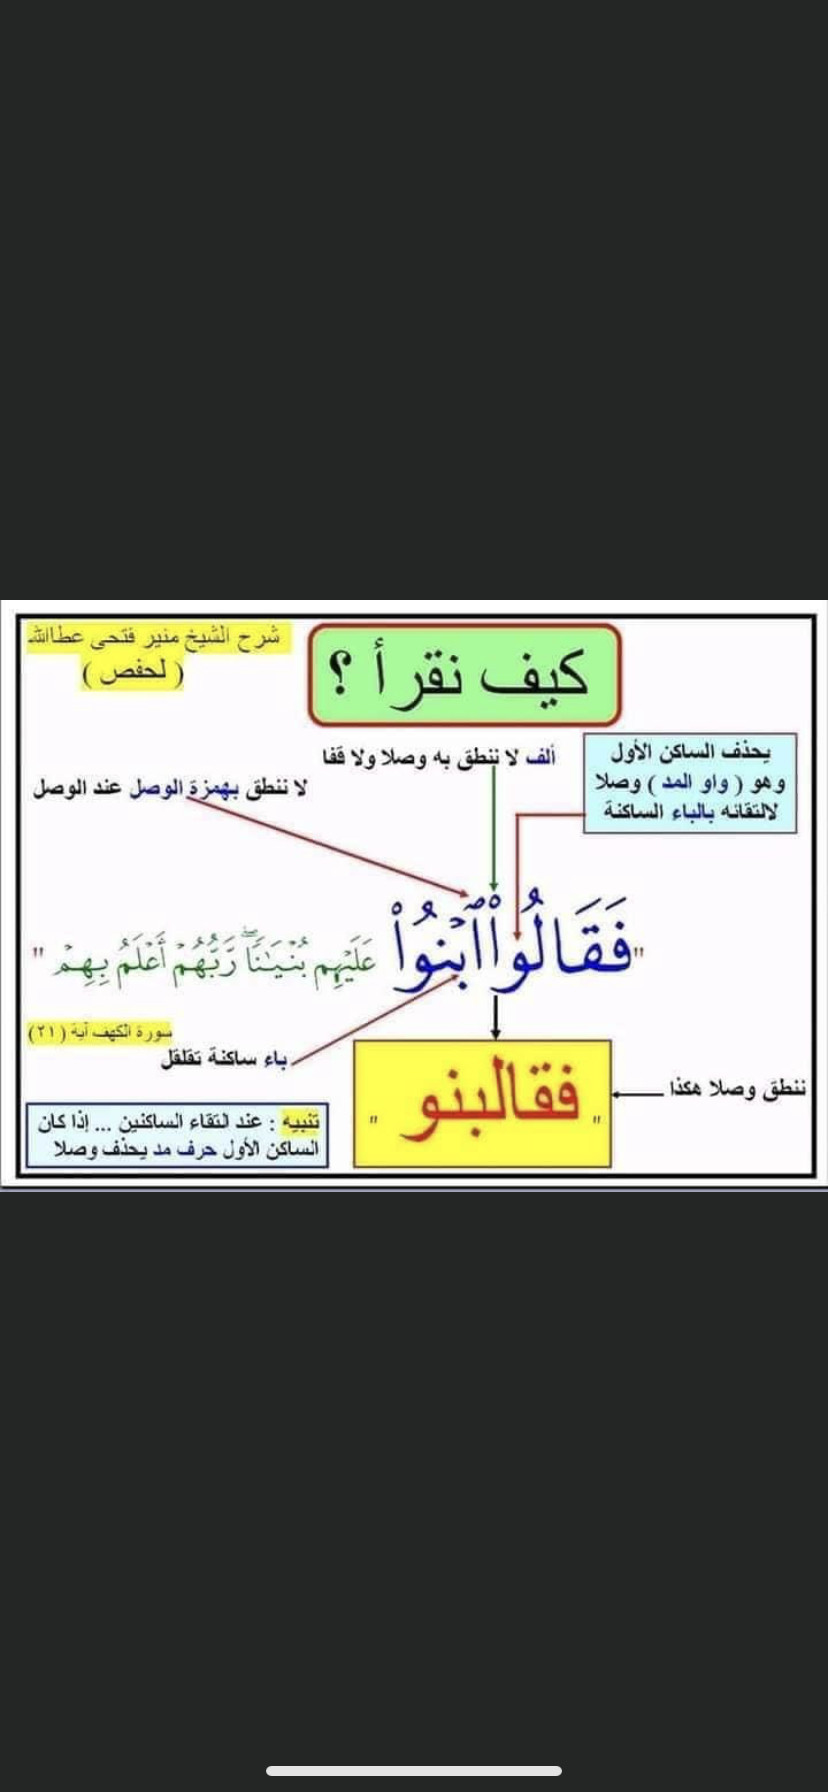 شرح الشيخ منير فتحى عطاالله
( لحفص )
كيف نقرأ ؟
يحذف الساكن الأول
وهو ( واو المد ) وصلا
لالتقائه بالباء الساكنة
ألف لا ننطق به وصلا ولا قفا
لا ننطق بهمزة الوصل عند الوصل
"فَقَالُوا۟ ٱبۡنُوا۟ عَلَيۡهِم بُنۡيَـٰنٗاۖ رَّبُّهُمۡ أَعۡلَمُ بِهِمۡ "
سورة الكهف آية ( ٢١ )
باء ساكنة تقلقل
ننطق وصلا هكذا
" فقالبنو "
تنبيه : عند التقاء الساكنين ... إذا كان
الساكن الأول حرف مد يحذف وصلا